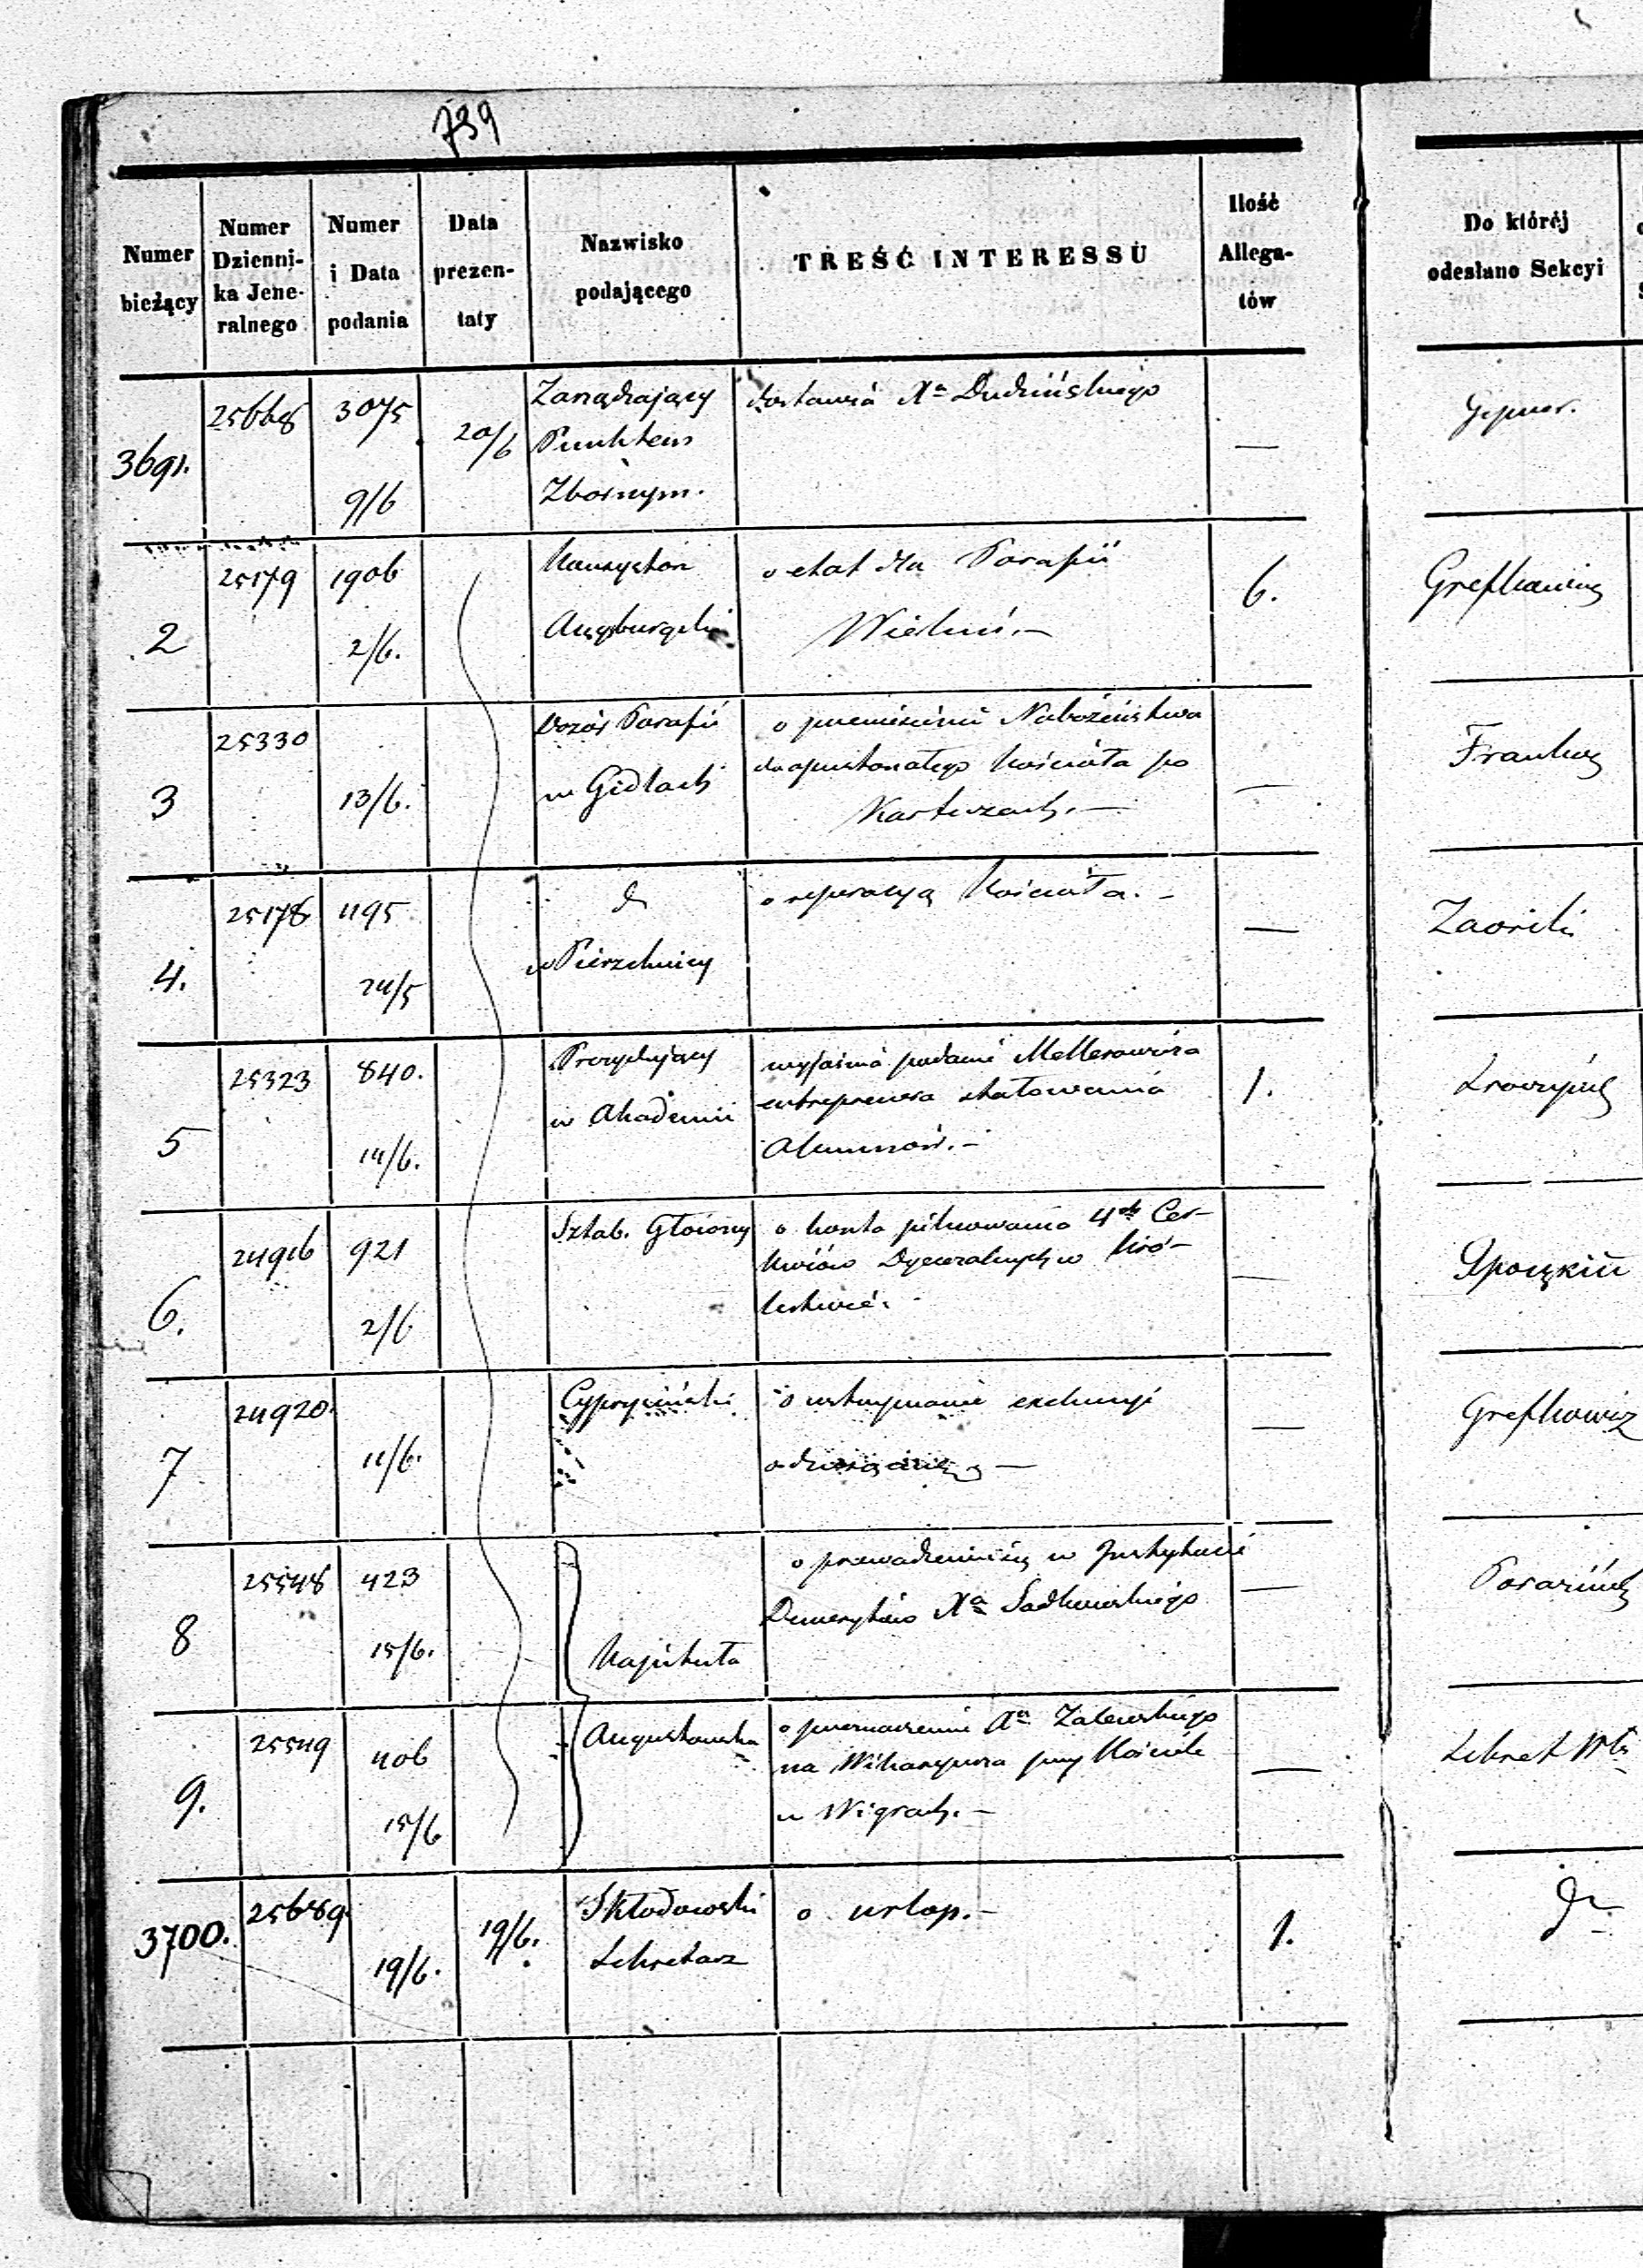 739
Numer bieżący
Numer Dzienni-ka Jene-ralnego
Numer i Data podania
Data prezen-taty
Nazwisko podającego
TREŚĆ INTERESSU
Ilość Allega-tów
Do któréj odesłano Sekcyi
3691. 25668 3075 9/6 20/6
Zarządzający
Punktem
Zbornym.
dostawia Xa Dudzińskiego
—
2 25179 1906 2/6.
Konsystorz
Augsburgski
o etat dla Parafii
Wieluń. —
6.
3 25330 13/6.
Dozór Parafii
w Gidlach
o przeniesienie Nabożeństwa
do opustoszałego Kościoła po
Kartuzach. —
—
4. 25178 1195 24/5
do
w Pierzchnicy
o reperacyą Kościoła. —
—
Zaorski
5 25323 840. 14/6.
Prezydujący
w Akademii
wyjaśnia podanie Mellerowicza
entreprenera stołowania
Alumnów. —
1.
6. 24916 921 2/6
Sztab. Główny
o koszta pilnowania 4ch Cer-
kwiów Dyecezalnych w Kró-
lestwie.
—
7 24920. 11/6.
o wstrzymanie exekucyi
—
Grefkowicz
8 25548 423 15/6.
Kapituła
o prowadzeniu się w Instytucie
Demerytów Xa Sadkowskiego
—
9. 25549 406 15/6
Augustowska
o przeznaczenie Xa Zalewskiego
na Wikaryusza przy Kościele
w Wigrach. —
—
3700. 25689. 19/6. 19/6.
Skłodowski
Sekretarz
o urlop. —
1.
do